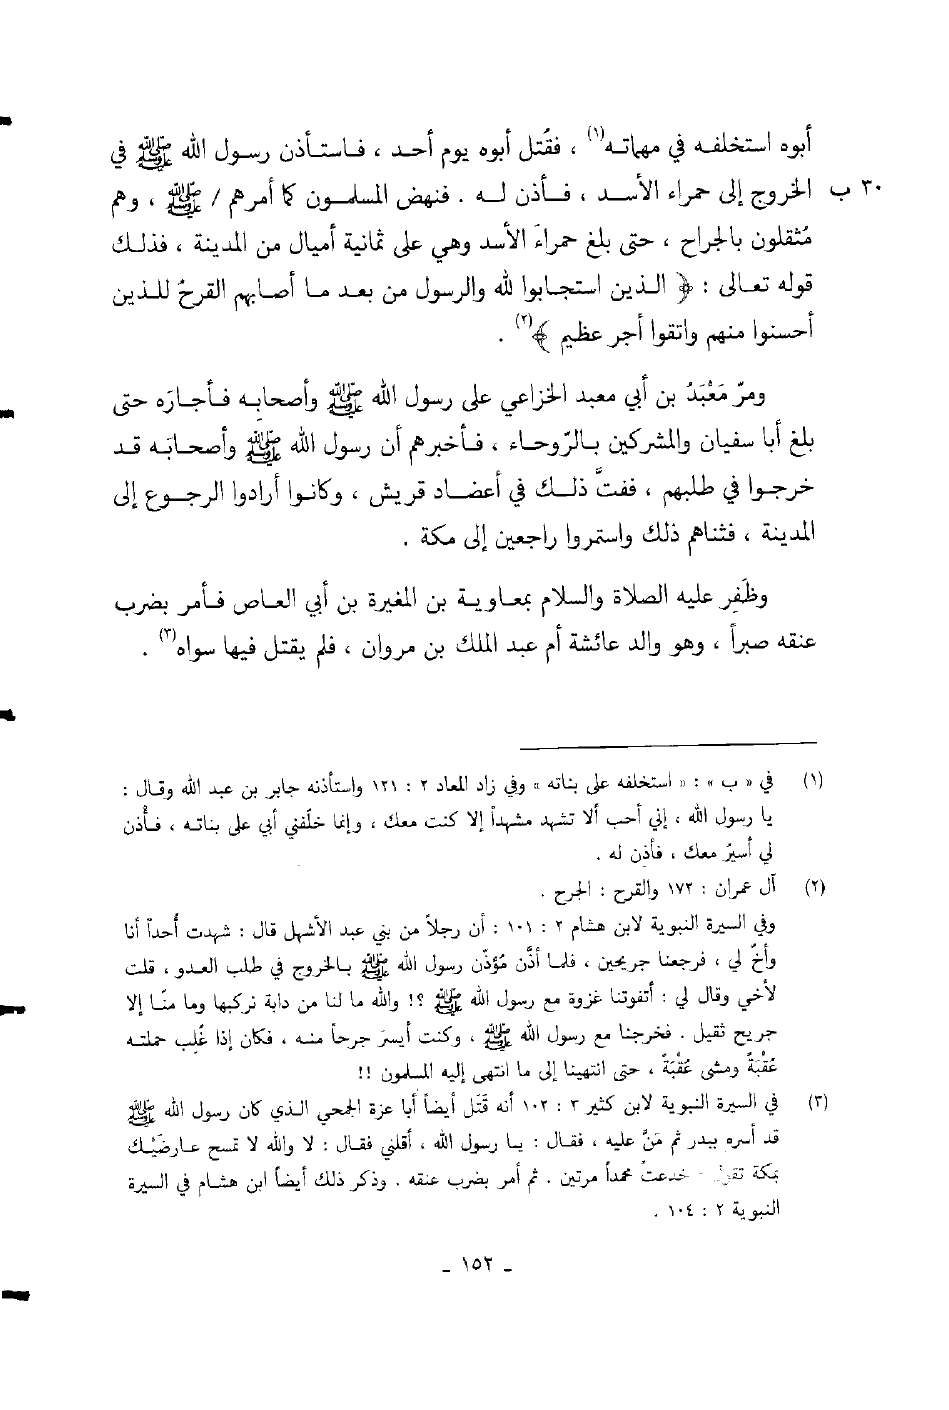 أبوه استخلفه في مهماته(١) ، فقُتل أبوه يوم أحد ، فاستأذن رسول الله ﷺ في
٣٠ ب الخروج إلى حمراء الأسد ، فأذن له . فنهض المسلمون كما أمرهم / ﷺ ، وهم
مُثقلون بالجراح ، حتى بلغ حمراءَ الأسد وهي على ثمانية أميال من المدينة ، فذلك
قوله تعالى : ﴿ الذين استجابوا لله والرسول من بعد ما أصابهم القرحُ للذين
أحسنوا منهم واتقوا أجر عظيم ﴾(٢) .
ومرّ مَعْبَدُ بن أبي معبد الخزاعي على رسول الله ﷺ وأصحابه فأجازَه حتى
بلغ أبا سفيان والمشركين بالرّوحاء ، فأخبرهم أن رسول الله ﷺ وأصحابَه قد
خرجوا في طلبهم ، ففتَّ ذلك في أعضاد قريش ، وكانوا أرادوا الرجوع إلى
المدينة ، فثناهم ذلك واستمروا راجعين إلى مكة .
وظَفِر عليه الصلاة والسلام بمعاوية بن المغيرة بن أبي العاص فأمر بضرب
عنقه صبراً ، وهو والد عائشة أم عبد الملك بن مروان ، فلم يقتل فيها سواه(٣) .
(١) في « ب » : « استخلفه على بناته » وفي زاد المعاد ٢ : ١٢١ واستأذنه جابر بن عبد الله وقال :
يا رسول الله ، إني أحب ألا تشهد مشهداً إلا كنت معك ، وإنما خلّفني أبي على بناته ، فأْذن
لي أسيرُ معك ، فأذِن له .
(٢) آل عمران : ١٧٢ والقرح : الجرح .
وفي السيرة النبوية لابن هشام ٢ : ١٠١ : أن رجلاً من بني عبد الأشهل قال : شهدت أُحداً أنا
وأخٌ لي ، فرجعنا جريحين ، فلما أذَّن مُؤذّن رسول الله ﷺ بالخروج في طلب العدو ، قلت
لأخي وقال لي : أتفوتنا غزوة مع رسول الله ﷺ ؟! والله ما لنا من دابة نركبها وما منّا إلا
جريح ثقيل . فخرجنا مع رسول الله ﷺ ، وكنت أيسرَ جرحاً منه ، فكان إذا غُلِب حملته
عُقْبَةً ومشى عُقْبَةً ، حتى انتهينا إلى ما انتهى إليه المسلمون !!
(٣) في السيرة النبوية لابن كثير ٣ : ١٠٢ أنه قَتَل أيضاً أبا عزة الجمحي الذي كان رسول الله ﷺ
قد أسره ببدر ثم مَنَّ عليه ، فقال : يا رسول الله ، أقلني فقال : لا والله لا تمسح عارضَيْك
بمكة تقول خدعتُ محمداً مرتين . ثم أمر بضرب عنقه . وذكر ذلك أيضاً ابن هشام في السيرة
النبوية ٢ : ١٠٤ .
- ١٥٢ -